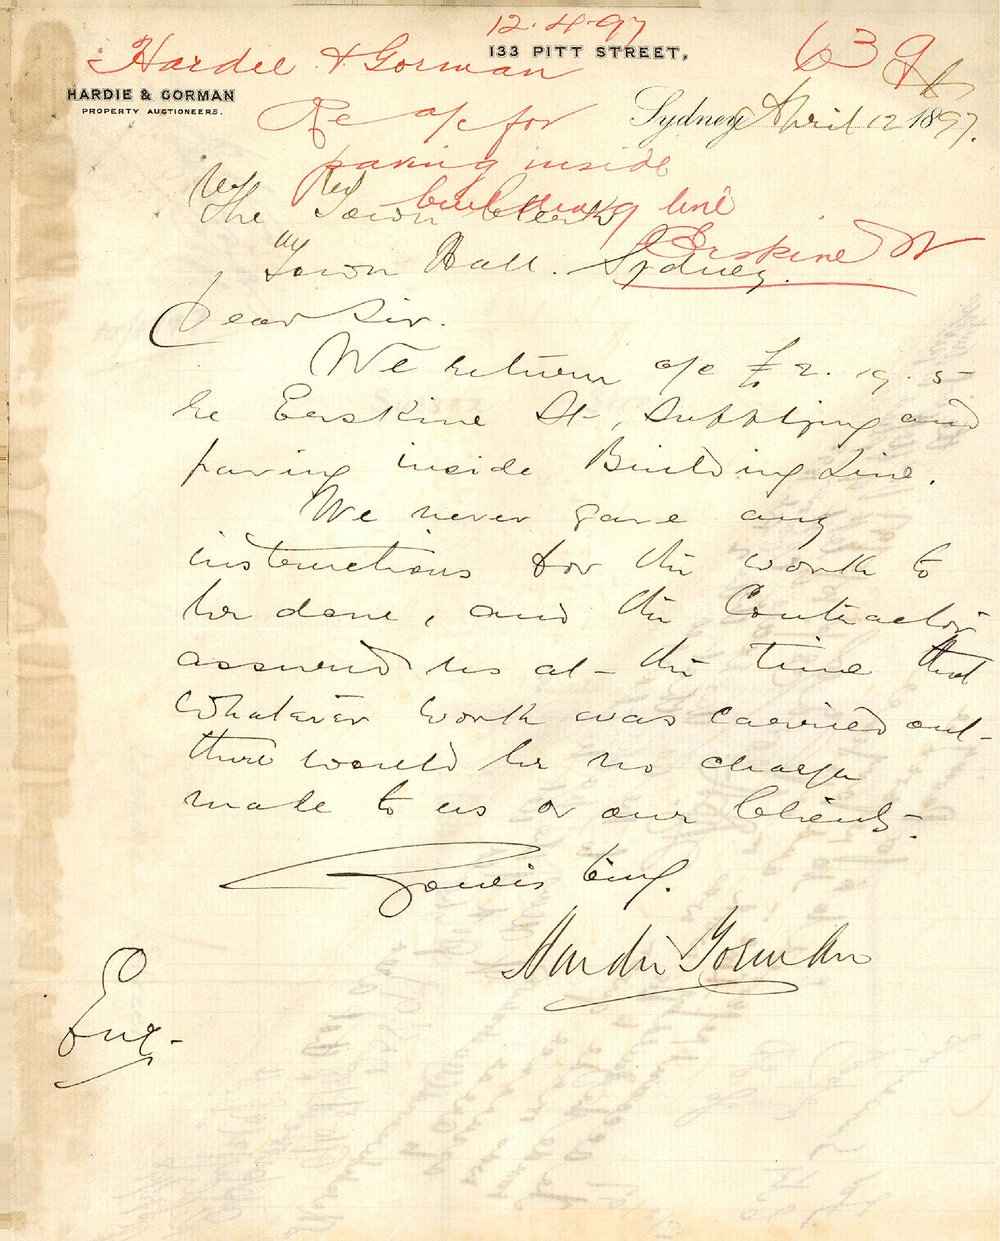 12.4.97
133 PITT STREET,
639
Hardie & Gorman
HARDIE & GORMAN
PROPERTY AUCTIONEERS.
Re a/c for
paving inside
building line
Erskine St
Sydney April 12 1897.
The Town Clerk
Town Hall. Sydney.
Dear Sir.
We return a/c £2.19.5
re Erskine St, Supplying and
paving inside Building Line.
We never gave any
instructions for the work to
be done, and the Contractor
assured us at the time that
whatever work was carried out
there would be no charge
made to us or our Clients.
Yours truly.
Hardie & Gorman
Enc.